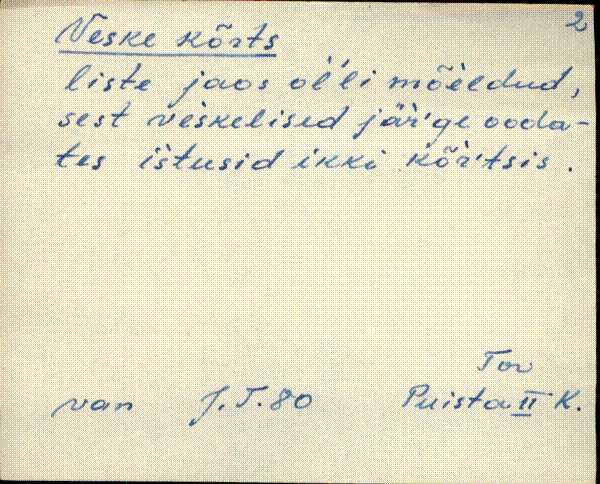 2
Veske kõrts
liste jaos ol'li mõeldud,
sest veskelised jär'ge ooda-
tes istusid ikki kõr'tsis.
Tor
van J.T.80 Puista II K.